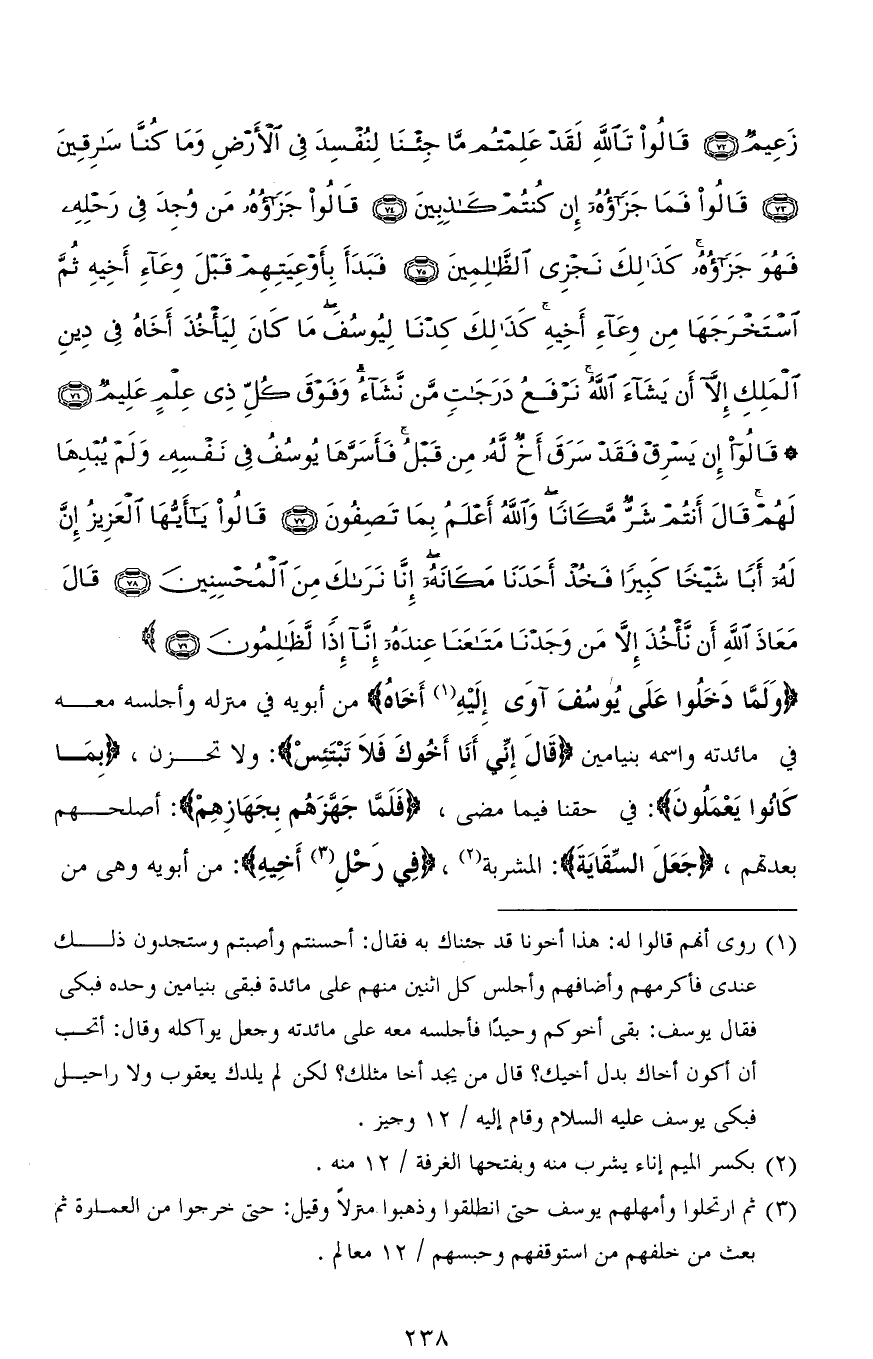 زَعِيمٌ ﴿٧٢﴾ قَالُوا۟ تَٱللَّهِ لَقَدْ عَلِمْتُم مَّا جِئْنَا لِنُفْسِدَ فِى ٱلْأَرْضِ وَمَا كُنَّا سَٰرِقِينَ
﴿٧٣﴾ قَالُوا۟ فَمَا جَزَٰٓؤُهُۥٓ إِن كُنتُمْ كَٰذِبِينَ ﴿٧٤﴾ قَالُوا۟ جَزَٰٓؤُهُۥ مَن وُجِدَ فِى رَحْلِهِۦ
فَهُوَ جَزَٰٓؤُهُۥ ۚ كَذَٰلِكَ نَجْزِى ٱلظَّٰلِمِينَ ﴿٧٥﴾ فَبَدَأَ بِأَوْعِيَتِهِمْ قَبْلَ وِعَآءِ أَخِيهِ ثُمَّ
ٱسْتَخْرَجَهَا مِن وِعَآءِ أَخِيهِ ۚ كَذَٰلِكَ كِدْنَا لِيُوسُفَ ۖ مَا كَانَ لِيَأْخُذَ أَخَاهُ فِى دِينِ
ٱلْمَلِكِ إِلَّآ أَن يَشَآءَ ٱللَّهُ ۚ نَرْفَعُ دَرَجَٰتٍ مَّن نَّشَآءُ ۗ وَفَوْقَ كُلِّ ذِى عِلْمٍ عَلِيمٌ ﴿٧٦﴾
* قَالُوٓا۟ إِن يَسْرِقْ فَقَدْ سَرَقَ أَخٌ لَّهُۥ مِن قَبْلُ ۚ فَأَسَرَّهَا يُوسُفُ فِى نَفْسِهِۦ وَلَمْ يُبْدِهَا
لَهُمْ ۚ قَالَ أَنتُمْ شَرٌّ مَّكَانًا ۖ وَٱللَّهُ أَعْلَمُ بِمَا تَصِفُونَ ﴿٧٧﴾ قَالُوا۟ يَٰٓأَيُّهَا ٱلْعَزِيزُ إِنَّ
لَهُۥٓ أَبًا شَيْخًا كَبِيرًا فَخُذْ أَحَدَنَا مَكَانَهُۥٓ ۖ إِنَّا نَرَىٰكَ مِنَ ٱلْمُحْسِنِينَ ﴿٧٨﴾ قَالَ
مَعَاذَ ٱللَّهِ أَن نَّأْخُذَ إِلَّا مَن وَجَدْنَا مَتَٰعَنَا عِندَهُۥٓ إِنَّآ إِذًا لَّظَٰلِمُونَ ﴿٧٩﴾ ﴾
﴿وَلَمَّا دَخَلُوا عَلَى يُوسُفَ آوَى إِلَيْهِ(١) أَخَاهُ﴾ من أبويه في منزله وأجلسه معه
في مائدته واسمه بنيامين ﴿قَالَ إِنِّي أَنَا أَخُوكَ فَلاَ تَبْتَئِسْ﴾: ولا تحزن ، ﴿بِمَا
كَانُوا يَعْمَلُونَ﴾: في حقنا فيما مضى ، ﴿فَلَمَّا جَهَّزَهُم بِجَهَازِهِمْ﴾: أصلحهم
بعدتهم ، ﴿جَعَلَ السِّقَايَةَ﴾: المشربة(٢) ، ﴿فِي رَحْلِ(٣) أَخِيهِ﴾: من أبويه وهى من
(١) روى أنهم قالوا له: هذا أخونا قد جئناك به فقال: أحسنتم وأصبتم وستجدون ذلك
عندى فأكرمهم وأضافهم وأجلس كل اثنين منهم على مائدة فبقى بنيامين وحده فبكى
فقال يوسف: بقى أخوكم وحيدًا فأجلسه معه على مائدته وجعل يواكله وقال: أتحب
أن أكون أخاك بدل أخيك؟ قال من يجد أخا مثلك؟ لكن لم يلدك يعقوب ولا راحيل
فبكى يوسف عليه السلام وقام إليه / ١٢ وجيز .
(٢) بكسر الميم إناء يشرب منه وبفتحها الغرفة / ١٢ منه .
(٣) ثم ارتحلوا وأمهلهم يوسف حتى انطلقوا وذهبوا منزلاً وقيل: حتى خرجوا من العملوة ثم
بعث من خلفهم من استوقفهم وحبسهم / ١٢ معالم .
٢٣٨